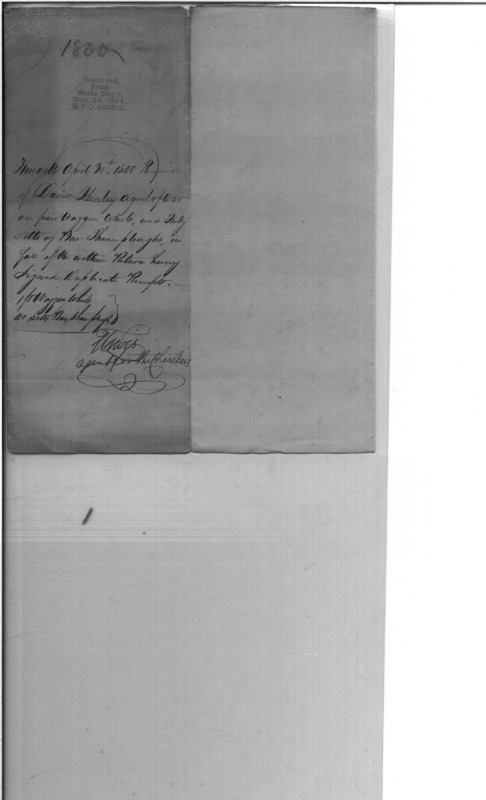 1800
Received
from
State Dept.
Nov. 24 1884.
April 20th 1800 Received
of David Henley agent of War
one pair Waggon Wheels, and Forty
Setts of Bar Shear ploughs, in
full of the within Return having
Signed Duplicate Receipts.
1 pr Waggon Wheels
40 setts Bar Shear
Lewis
agent for the Cherokees